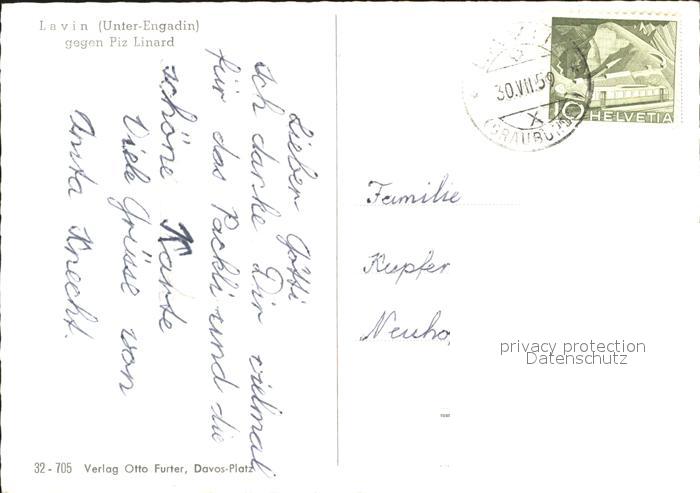 Lavin (Unter-Engadin)
gegen Piz Linard
Lieber Götti
Ich danke Dir vielmal
für das Päckli und die
schöne Karte
Viele Grüsse von
Knecht.
30.VII.59
X
(GRAUBÜND
10
HELVETIA
Familie
Kupfer
Neuho
privacy protection
Datenschutz
32-705 Verlag Otto Furter, Davos-Platz